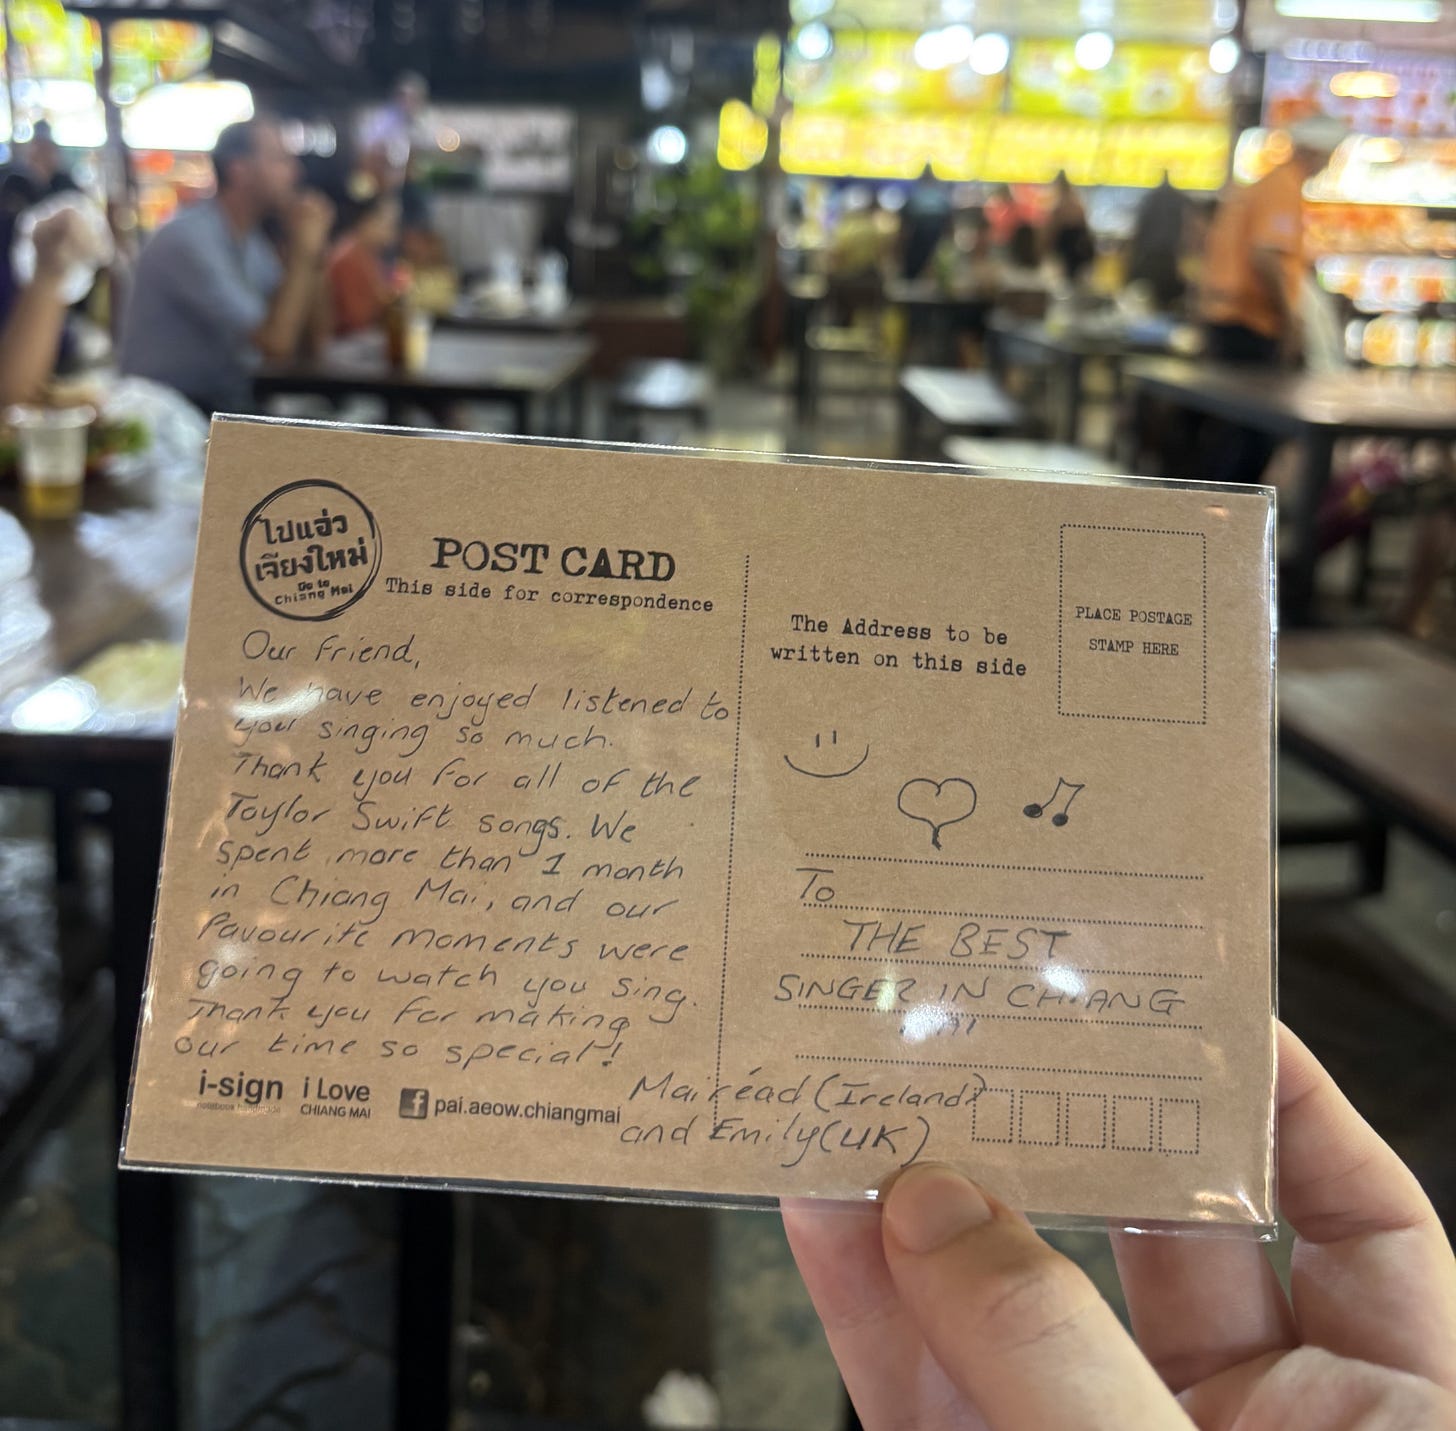 ไปแอ่ว
เจียงใหม่
Go to
Chiang Mai
POST CARD
This side for correspondence
Our friend,
We have enjoyed listened to
your singing so much.
Thank you for all of the
Taylor Swift songs. We
spent more than 1 month
in Chiang Mai, and our
favourite moments were
going to watch you sing.
Thank you for making
our time so special!
Mairéad (Ireland)
and Emily (UK)
i-sign
i Love
CHIANG MAI
pai.aeow.chiangmai
The Address to be
written on this side
PLACE POSTAGE
STAMP HERE
To
THE BEST
SINGER IN CHIANG